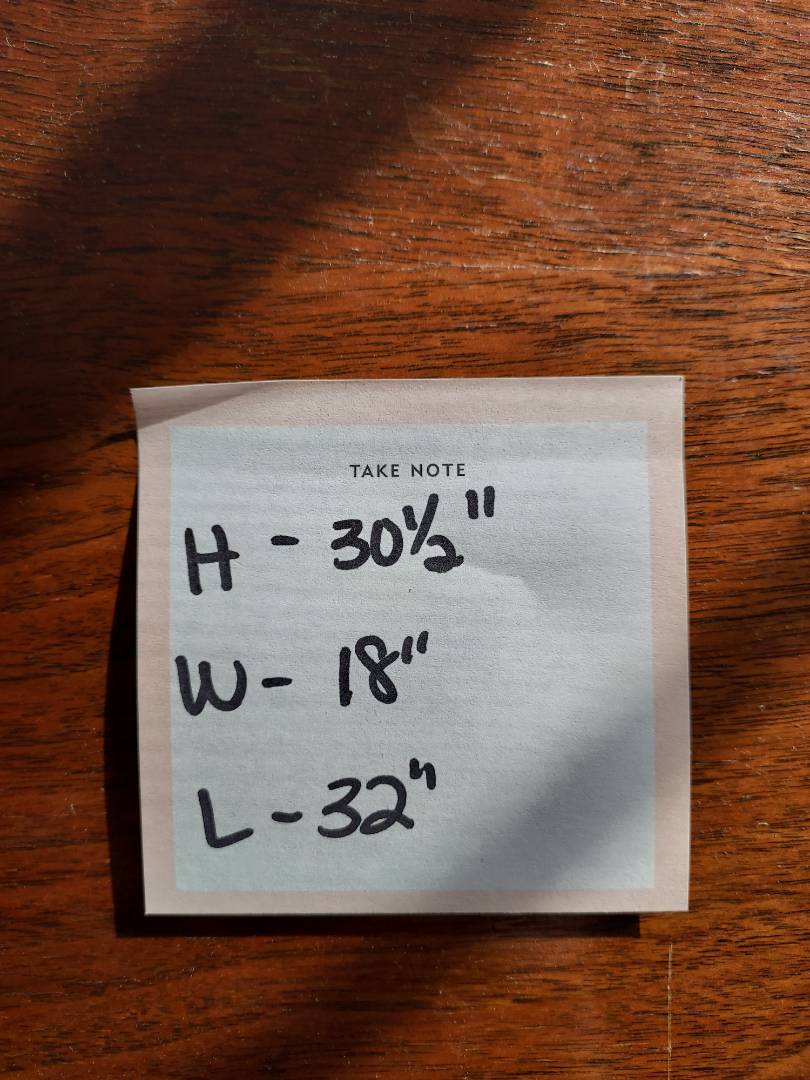 TAKE NOTE
H - 30 1/2"
W - 18"
L - 32"